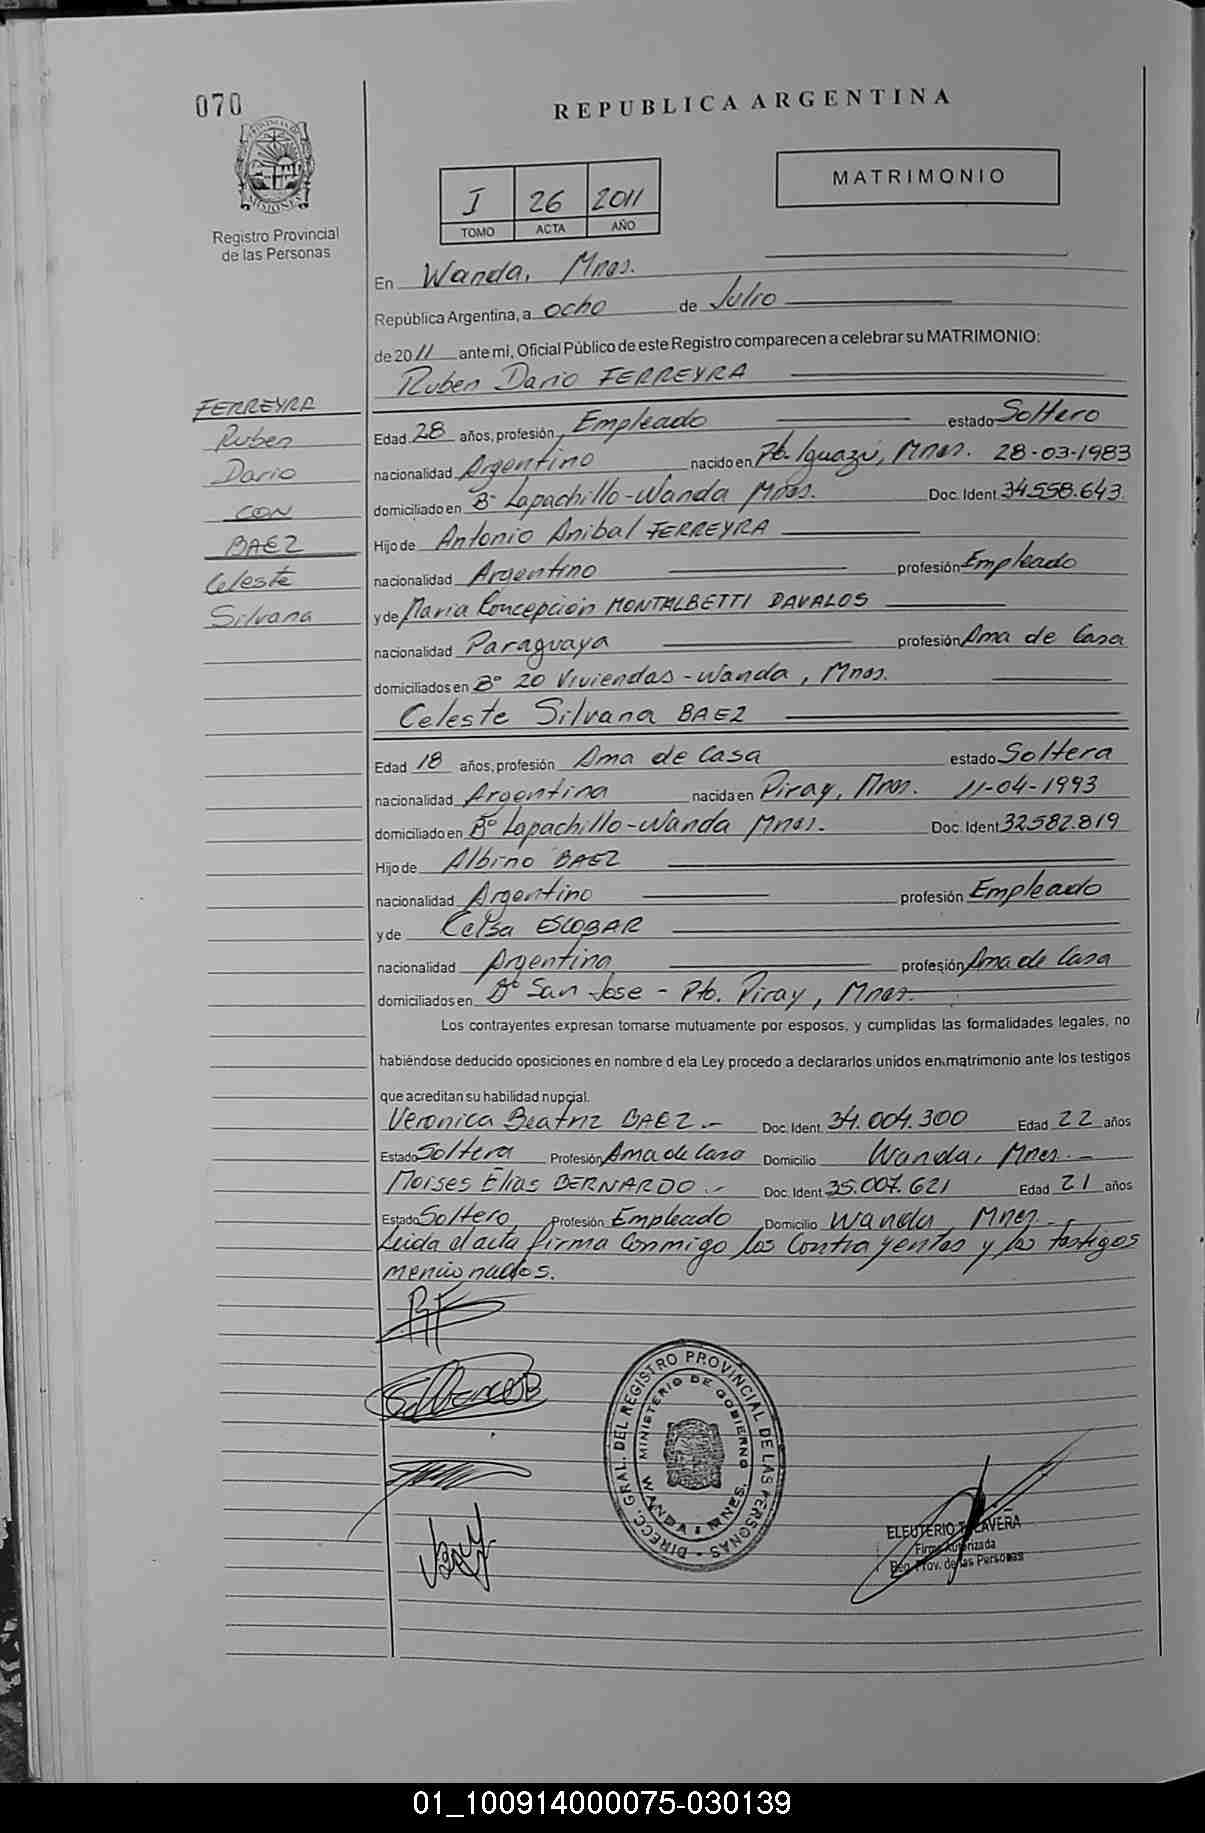 070
REPUBLICA ARGENTINA
PROVINCIA DE MISIONES
Registro Provincial
de las Personas
I 26 2011
TOMO ACTA AÑO
MATRIMONIO
En Wanda, Mnes.
República Argentina, a ocho de Julio
de 2011 ante mi, Oficial Público de este Registro comparecen a celebrar su MATRIMONIO:
Ruben Dario FERREYRA
FERREYRA
Ruben
Dario
CON
BAEZ
Celeste
Silvana
Edad 28 años, profesión Empleado estado Soltero
nacionalidad Argentino nacido en Pto. Iguazú, Mnes. 28-03-1983
domiciliado en Bº Lapachillo-Wanda Mnes. Doc. Ident. 34.558.643
Hijo de Antonio Anibal FERREYRA
nacionalidad Argentino profesión Empleado
y de Maria Concepción MONTALBETTI DAVALOS
nacionalidad Paraguaya profesión Ama de Casa
domiciliados en Bº 20 Viviendas-Wanda, Mnes.
Celeste Silvana BAEZ
Edad 18 años, profesión Ama de Casa estado Soltera
nacionalidad Argentina nacida en Piray, Mnes. 11-04-1993
domiciliado en Bº Lapachillo-Wanda Mnes. Doc. Ident. 32.582.819
Hijo de Albino BAEZ
nacionalidad Argentino profesión Empleado
y de Celsa ESCOBAR
nacionalidad Argentina profesión Ama de Casa
domiciliados en Bº San Jose - Pto. Piray, Mnes.
Los contrayentes expresan tomarse mutuamente por esposos, y cumplidas las formalidades legales, no
habiéndose deducido oposiciones en nombre d ela Ley procedo a declararlos unidos en matrimonio ante los testigos
que acreditan su habilidad nupcial.
Veronica Beatriz BAEZ.- Doc. Ident. 34.004.300 Edad 22 años
Estado Soltera Profesión Ama de Casa Domicilio Wanda, Mnes.-
Moises Elias BERNARDO.- Doc. Ident. 35.007.621 Edad 21 años
Estado Soltero Profesión Empleado Domicilio Wanda, Mnes.-
Leida el acta firma conmigo los Contrayentes y los testigos
mencionados.
DIRECC. GRAL. DEL REGISTRO PROVINCIAL DE LAS PERSONAS
MINISTERIO DE GOBIERNO
WANDA MNES.
ELEUTERIO TALAVERA
Firma Autorizada
Reg. Prov. de las Personas
01_100914000075-030139